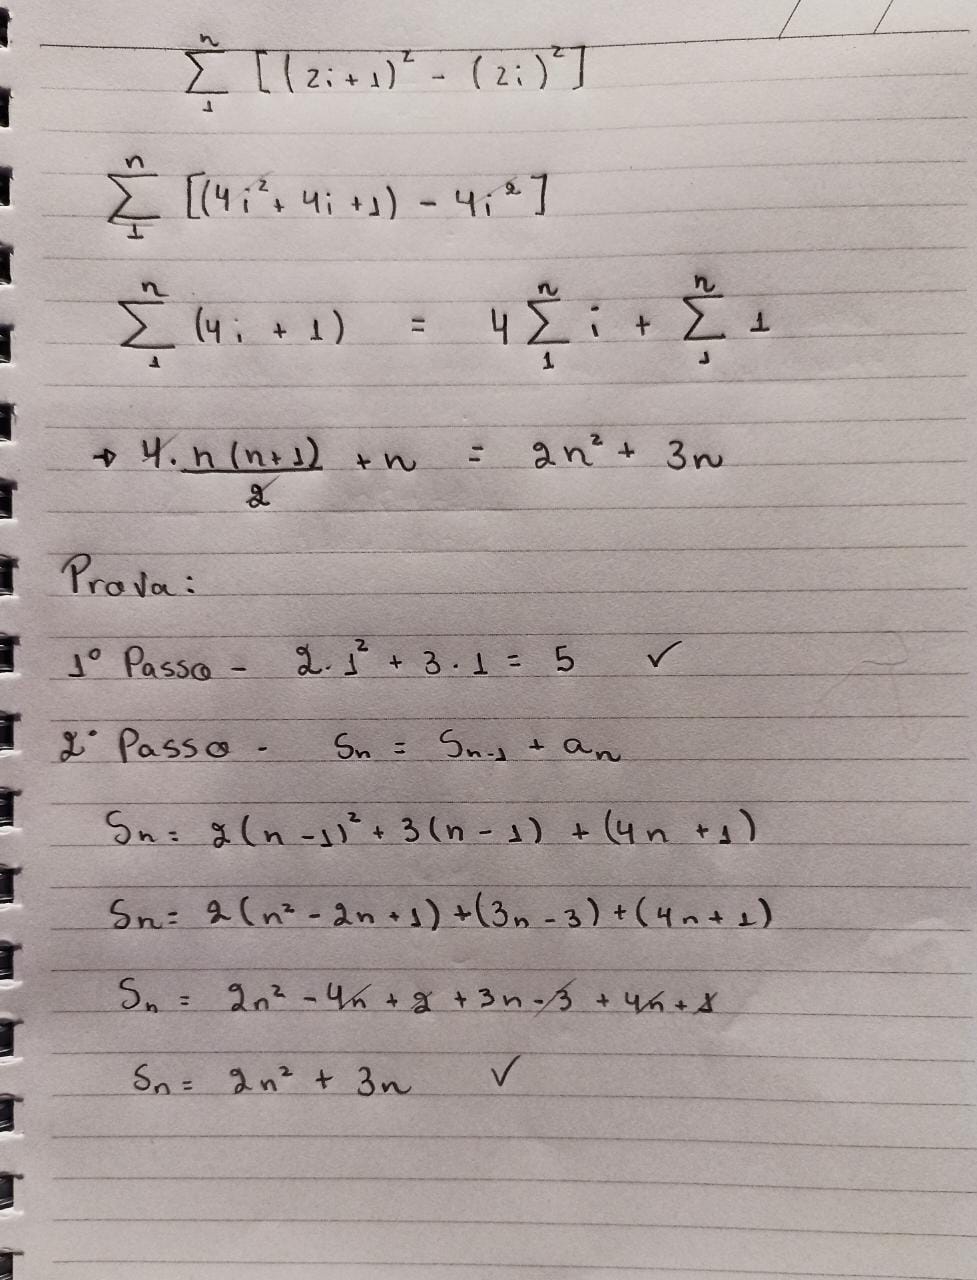 n∑1 [(2i+1)² - (2i)²]
n∑1 [(4i²+4i+1) - 4i²]
n∑1 (4i + 1) = 4 n∑1 i + n∑1 1
→ 4. n(n+1)/2 + n = 2n² + 3n
Prova:
1º Passo - 2.1² + 3.1 = 5 ✓
2º Passo - Sn = Sn-1 + an
Sn = 2(n-1)² + 3(n-1) + (4n+1)
Sn = 2(n² - 2n + 1) + (3n - 3) + (4n + 1)
Sn = 2n² - 4n + 2 + 3n - 3 + 4n + 1
Sn = 2n² + 3n ✓